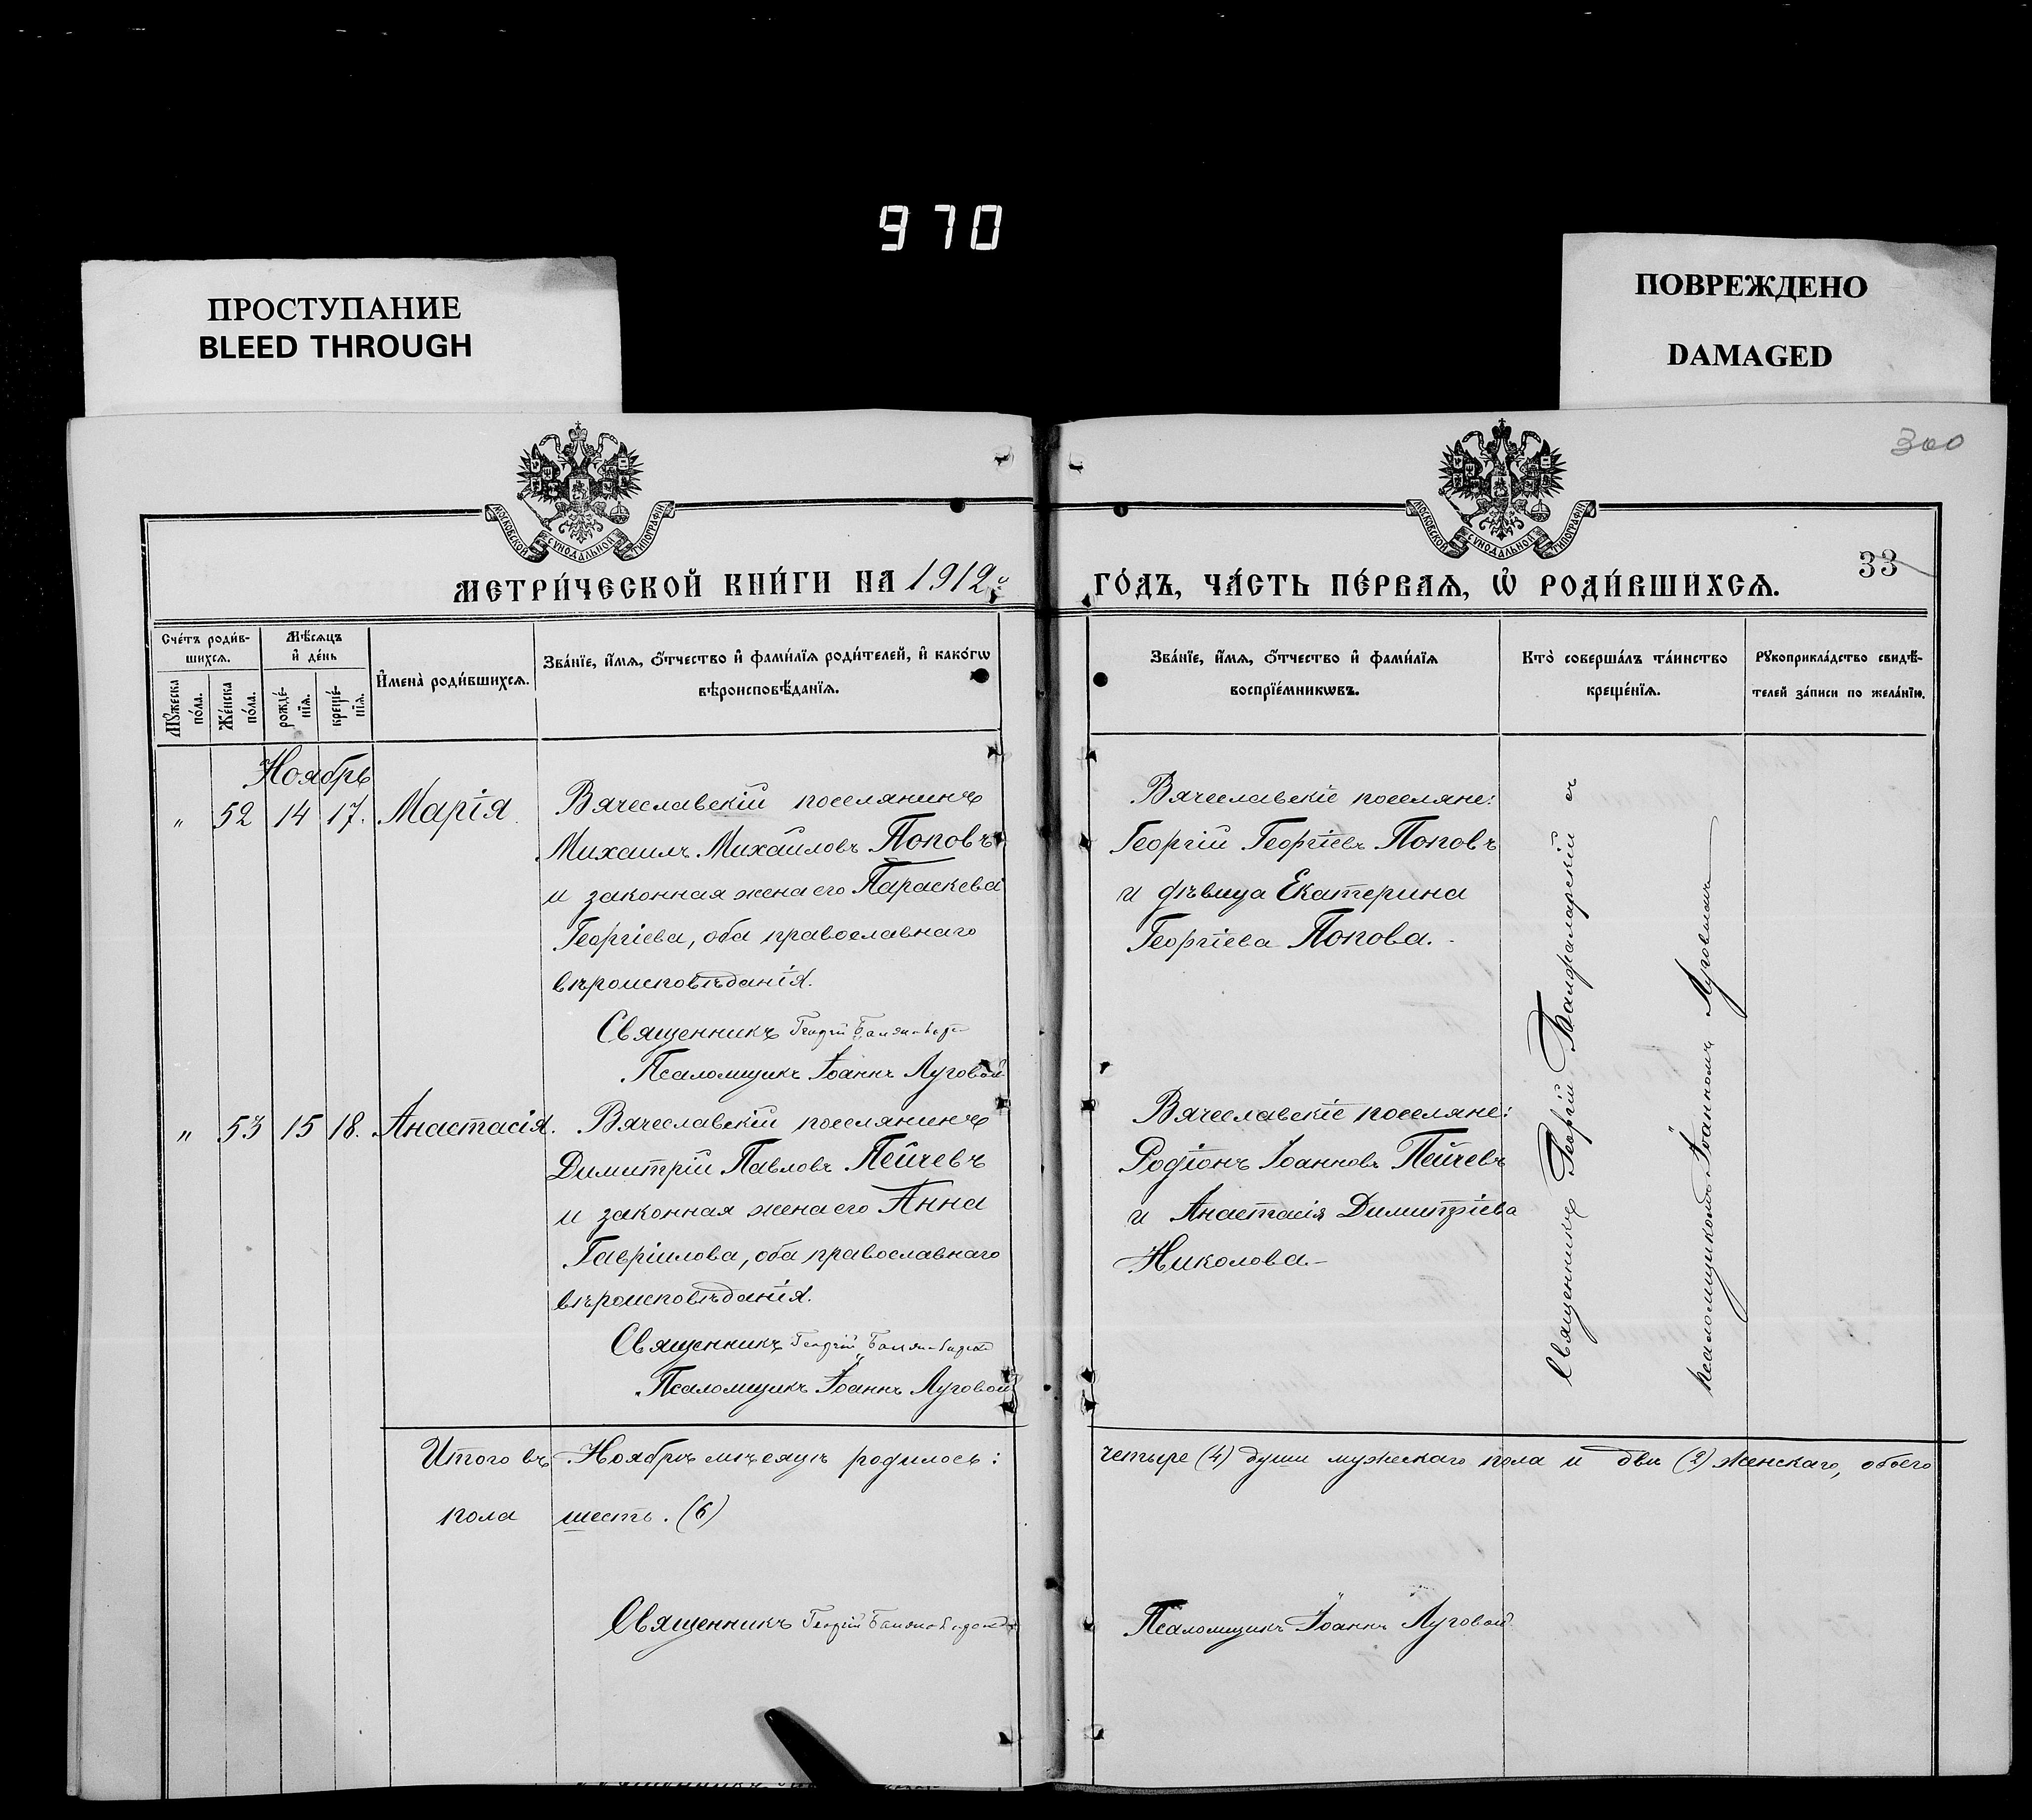 970
ПРОСТУПАНИЕ
BLEED THROUGH
ПОВРЕЖДЕНО
DAMAGED
МОСКОВСКОЙ СУНОДАЛЬНОЙ ТИПОГРАФІИ
МОСКОВСКОЙ СУНОДАЛЬНОЙ ТИПОГРАФІИ
300
33
МЕТРИ́ЧЕСКОЙ КНИ́ГИ НА 1912й ГО́ДЪ, ЧА́СТЬ ПЕ́РВАѦ, Ѡ РОДИ́ВШИХСѦ.
Сче́тъ роди́в-
шихсѧ.
Мꙋжеска
по́ла.
Же́нска
по́ла.
Мѣ́сѧцъ
и҆ де́нь
рожде́-
нїѧ.
креще́-
нїѧ.
И҆мена̀ роди́вшихсѧ.
Зва́нїе, и҆́мѧ, ѻ҆́тчество и҆ фами́лїѧ роди́телей, и҆ како́гѡ
вѣроисповѣ́данїѧ.
Зва́нїе, и҆́мѧ, ѻ҆́тчество и҆ фами́лїѧ
воспрїе́мникѡвъ.
Кто̀ соверша́лъ та́инство
креще́нїѧ.
Рꙋкоприкла́дство свидѣ́-
телей за́писи по жела́нїю.
Ноябрь
" 52 14 17. Марія.
Вячеславскій поселянинъ
Михаилъ Михайловъ Поповъ
и законная жена его Параскева
Георгіева, оба православнаго
вѣроисповѣданія.
Священникъ Георгій
Псаломщикъ Іоаннъ Луговой
Вячеславскіе поселяне:
Георгій Георгіевъ Поповъ
и дѣвица Екатерина
Георгіева Попова.
" 53 15 18. Анастасія.
Вячеславскій поселянинъ
Димитрій Павловъ Пейчевъ
и законная жена его Анна
Гавріилова, оба православнаго
вѣроисповѣданія.
Священникъ Георгій
Псаломщикъ Іоаннъ Луговой
Вячеславскіе поселяне:
Родіонъ Іоанновъ Пейчевъ
и Анастасія Димитріева
Николова.
Священникъ Георгій съ
псаломщикомъ Іоанномъ Луговымъ
Итого въ Ноябрѣ мѣсяцѣ родилось: четыре (4) души мужескаго пола и двѣ (2) женскаго, обоего
пола шесть. (6)
Священникъ Георгій
Псаломщикъ Іоаннъ Луговой